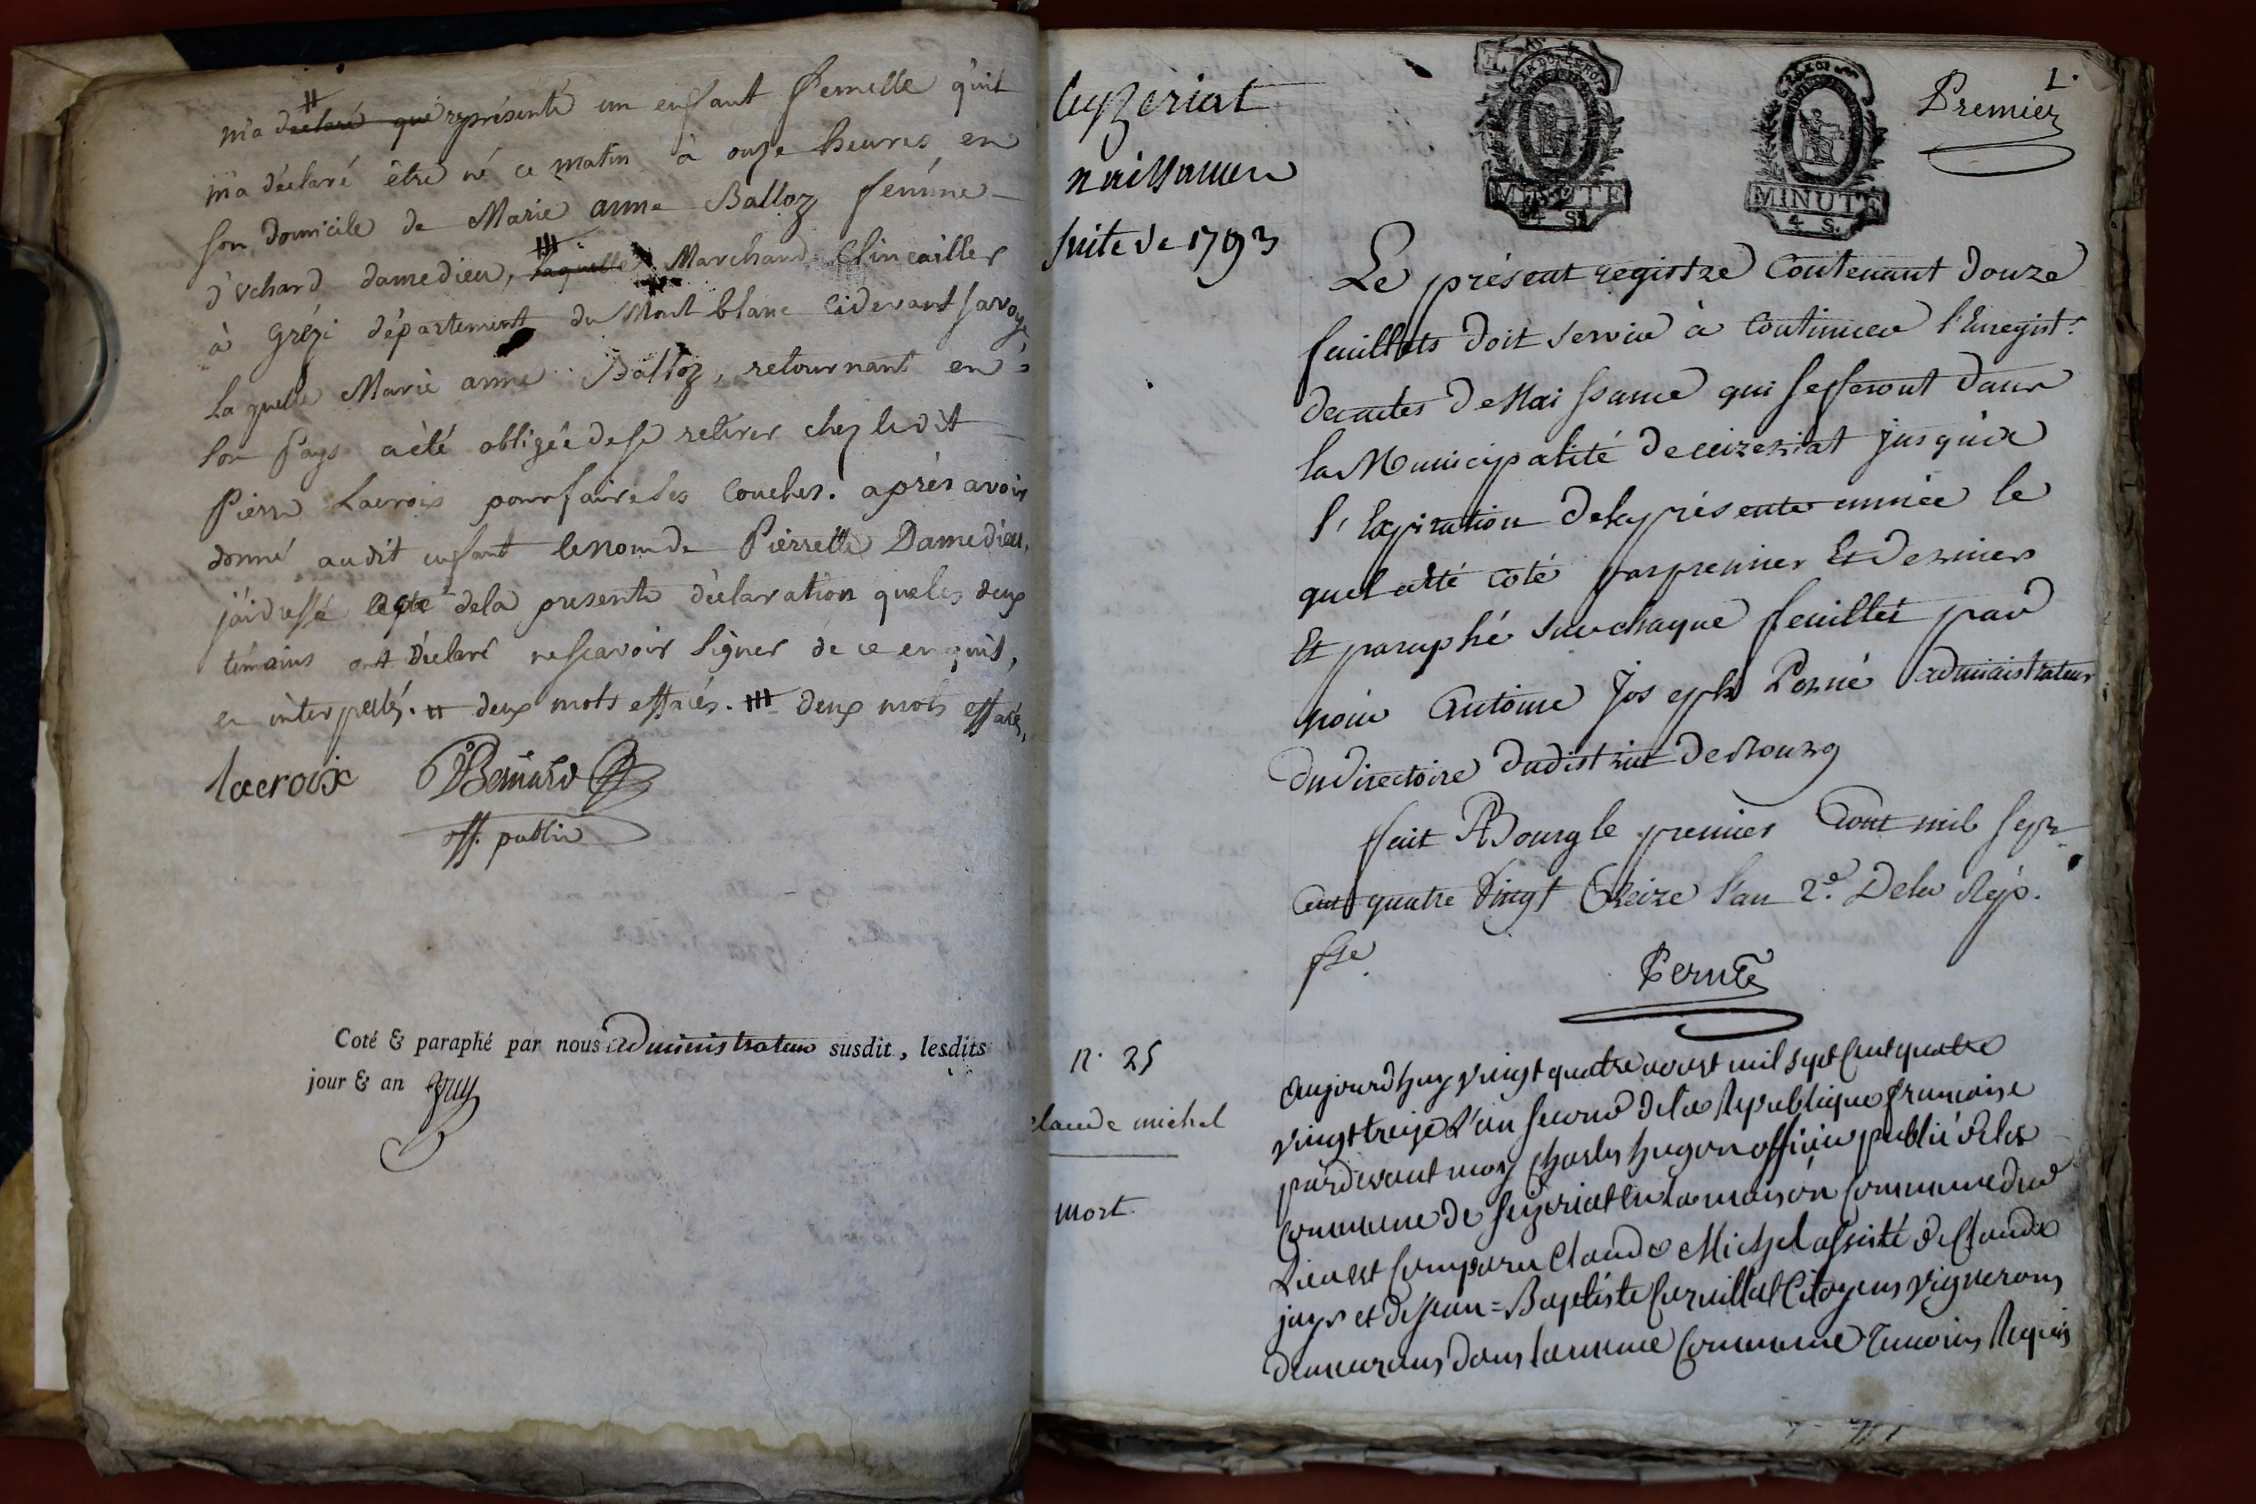 m'a déclaré que représenté un enfant femelle qu'il
m'a déclaré être né ce matin à onze heures en
son domicile de Marie anne Balloz femme
d'uchard damedieu, laquelle Marchand Clincailler
à Grézi département du Mont blanc cidevant savoye,
laquelle Marie anne Balloz, retournant en
son pays a été obligée de se retirer chez ledit
Pierre Lacroix pour faire ses couches. après avoir
donné audit enfant le nom de Pierrette Damedieu,
j'ai dressé acte de la presente déclaration que les deux
témoins ont déclaré ne scavoir signer de ce enquis,
en interpellés. # deux mots effacés. ## deux mots effacés,
lacroix Bernard
off. public
Coté & paraphé par nous administrateur susdit, lesdits
jour & an
Ceyzeriat
naissances
suite de 1793
MINUTE
4 S.
MINUTE
4 S.
1.
Premier
Le présent registre Contenant douze
feuillets doit servir à Continuer l'Enregist.
des actes de Naissance qui se feront dans
la Municipalité de ceizeriat jusqu'à
l'Expiration de la présente année le
quel a été coté par premier Et dernier
Et paraphé sur chaque feuillet par
nous Antoine Joseph Perné administrateur
du directoire du district de Bourg
fait A Bourg le premier Aout mil sept
Cent quatre Vingt Treize l'an 2.e De la Rép.
fse.
Perné
n. 25
claude michel
mort
aujourdhuy vingt quatre aoust mil sept Cent quatre
vingt treize L'an second de la Republique françoise
pardevant moy Charles hugon officier public de la
Commune de Seizeriat en la maison Commune du
Lieu est Comparu Claude Michel assisté de Claude
jays et de Jean=Baptiste Cuvillat Citoyens vignerons
demeurans dans la meme Commune temoins Requis